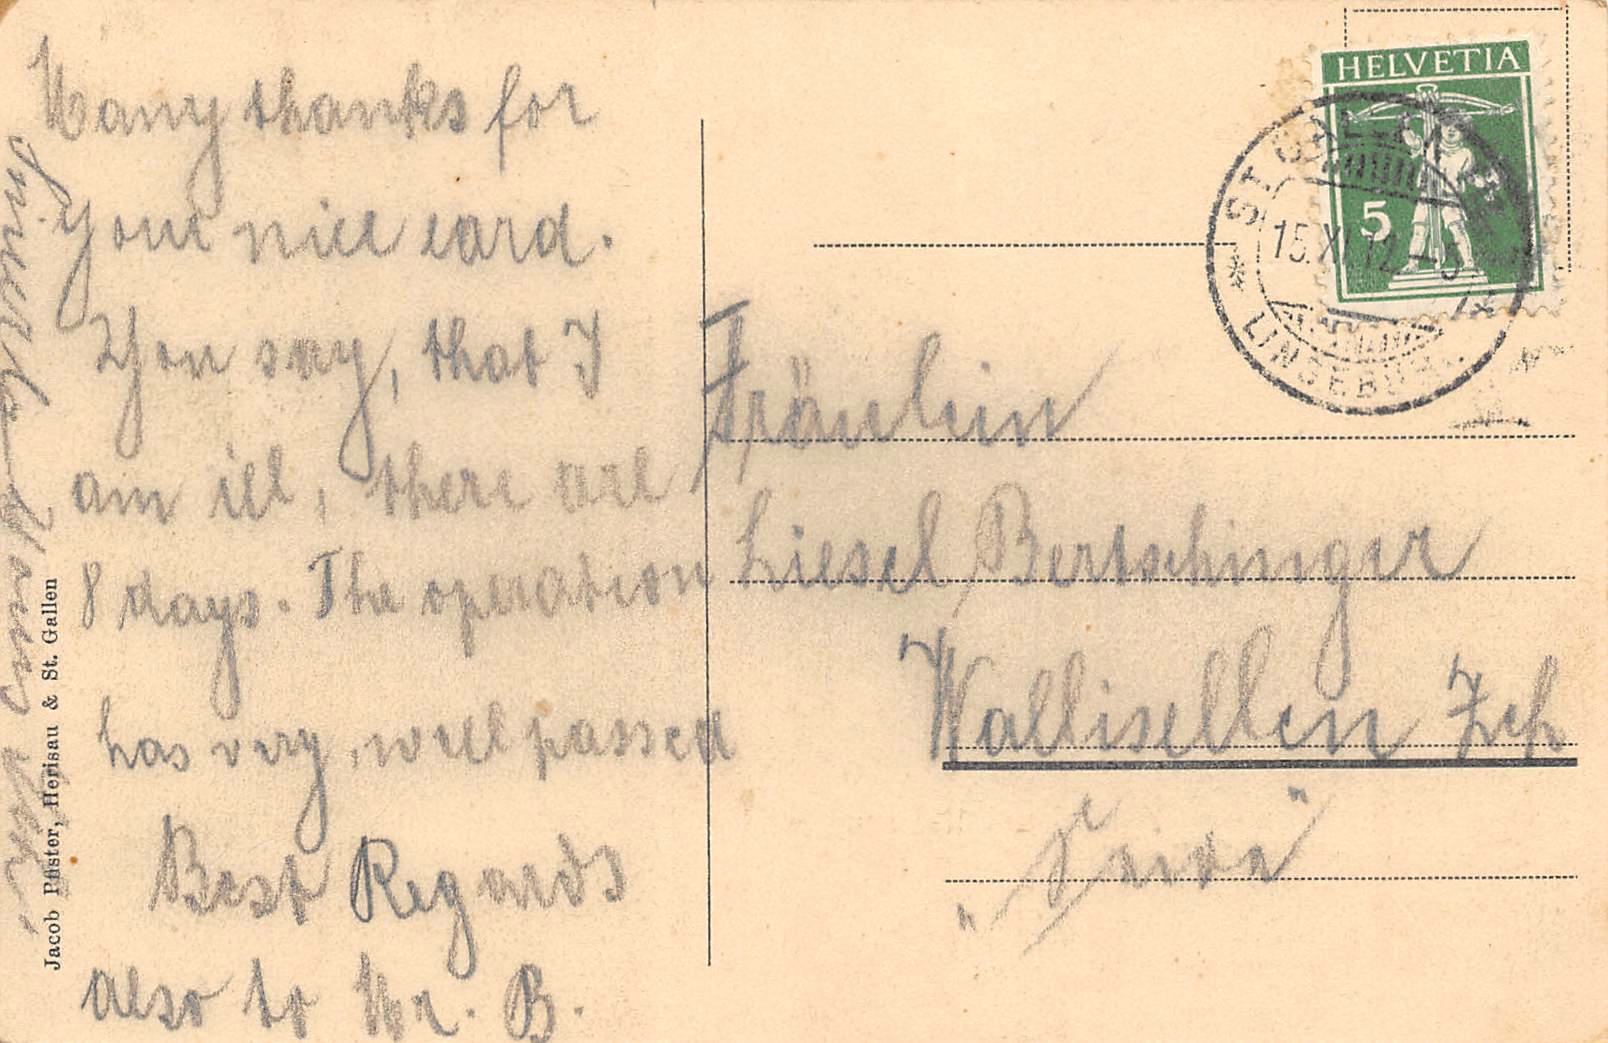 Many thanks for
your nice card.
You say, that I
am ill, there are
8 days. The operation
has very well passed
Best Regards
also to Mr. B.
Jacob Pfister, Herisau & St. Gallen
HELVETIA
5
ST. GALLEN
15.XI.12.-5
LINSEBÜHL
Fräulein
Liesel Bertschinger
Wallisellen Zch